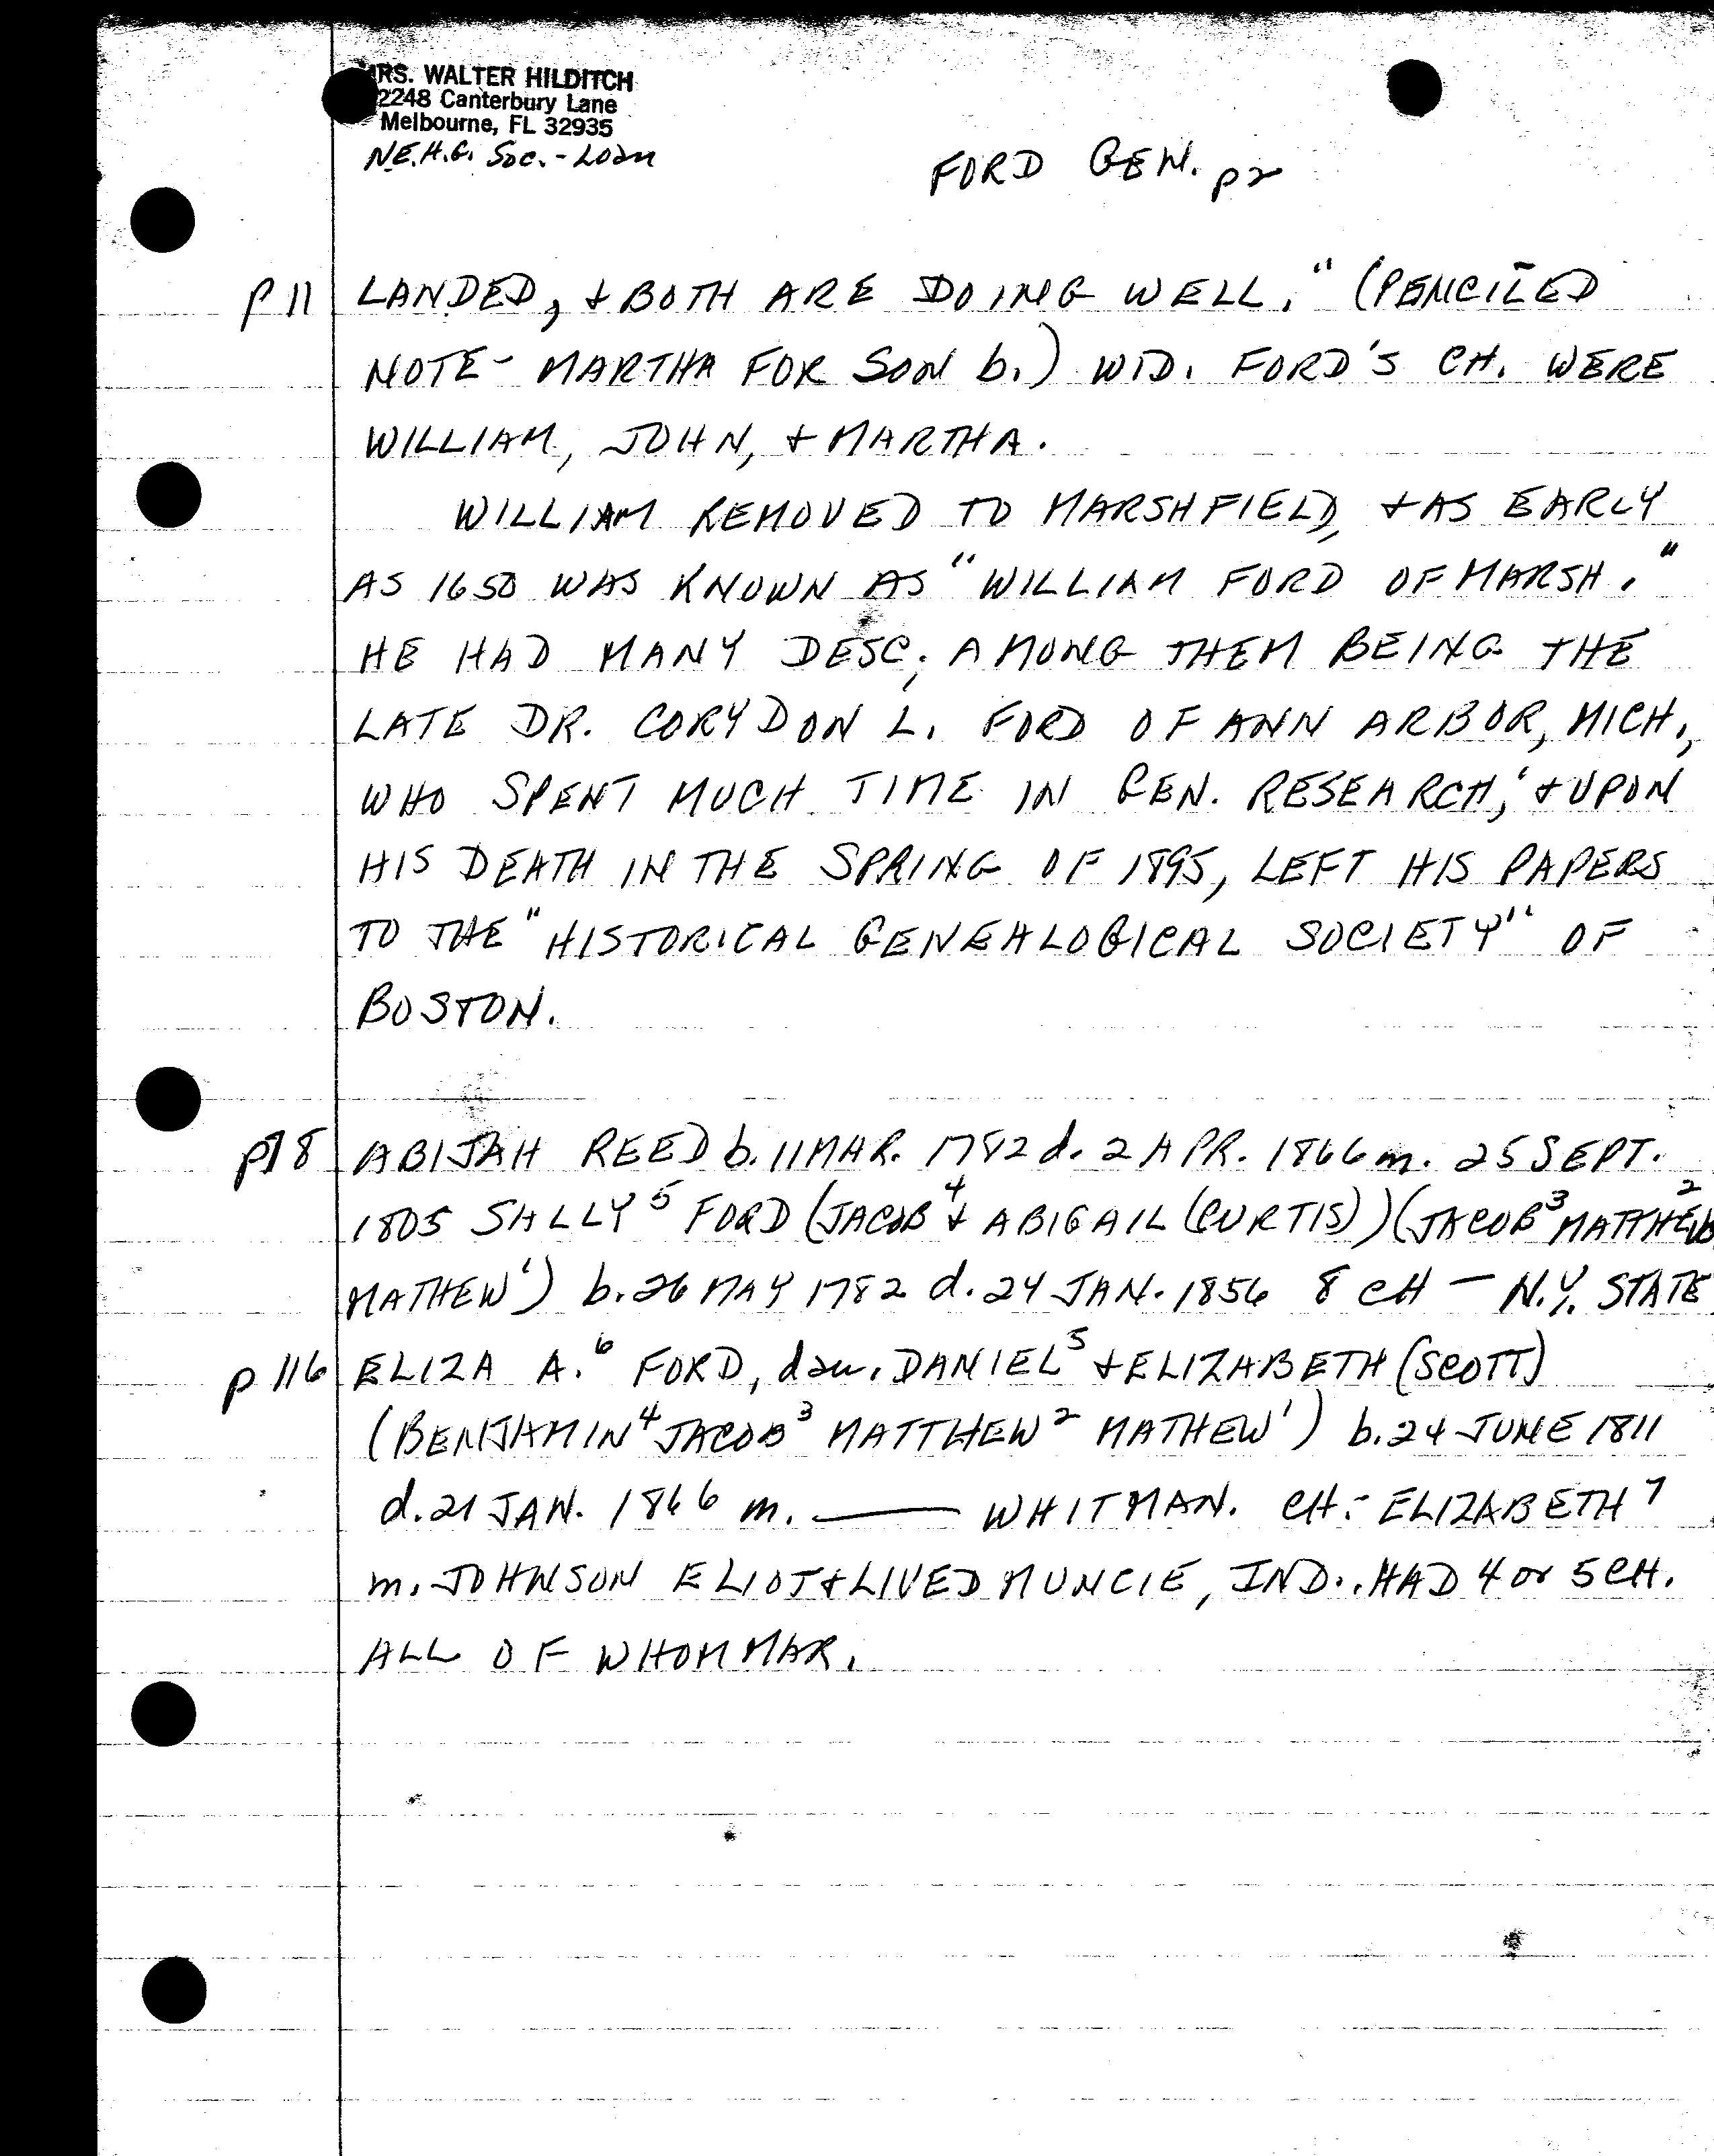 MRS. WALTER HILDITCH
2248 Canterbury Lane
Melbourne, FL 32935
N.E.H.G. Soc. - Loan
FORD GEN. p2
p 11 LANDED, + BOTH ARE DOING WELL." (PENCILED
NOTE - MARTHA FOR SON b.) WID. FORD'S CH. WERE
WILLIAM, JOHN, + MARTHA.
WILLIAM REMOVED TO MARSHFIELD, + AS EARLY
AS 1650 WAS KNOWN AS "WILLIAM FORD OF MARSH."
HE HAD MANY DESC, AMONG THEM BEING THE
LATE DR. CORYDON L. FORD OF ANN ARBOR, MICH.,
WHO SPENT MUCH TIME IN GEN. RESEARCH, + UPON
HIS DEATH IN THE SPRING OF 1895, LEFT HIS PAPERS
TO THE "HISTORICAL GENEALOGICAL SOCIETY" OF
BOSTON.
ABIJAH REED b. 11 MAR. 1782 d. 2 APR. 1866 m. 25 SEPT.
1805 SALLY⁵ FORD (JACOB⁴ + ABIGAIL (CURTIS)) (JACOB³ MATTHEW²
MATHEW¹) b. 26 MAY 1782 d. 24 JAN. 1856 8 CH — N.Y. STATE
p 116 ELIZA A.⁶ FORD, dau. DANIEL⁵ + ELIZABETH (SCOTT)
(BENJAMIN⁴ JACOB³ MATTHEW² MATHEW¹) b. 24 JUNE 1811
d. 21 JAN. 1866 m. —— WHITMAN. CH: - ELIZABETH⁷
m. JOHNSON ELIOT + LIVED MUNCIE, IND.. HAD 4 or 5 CH.
ALL OF WHOM MAR.